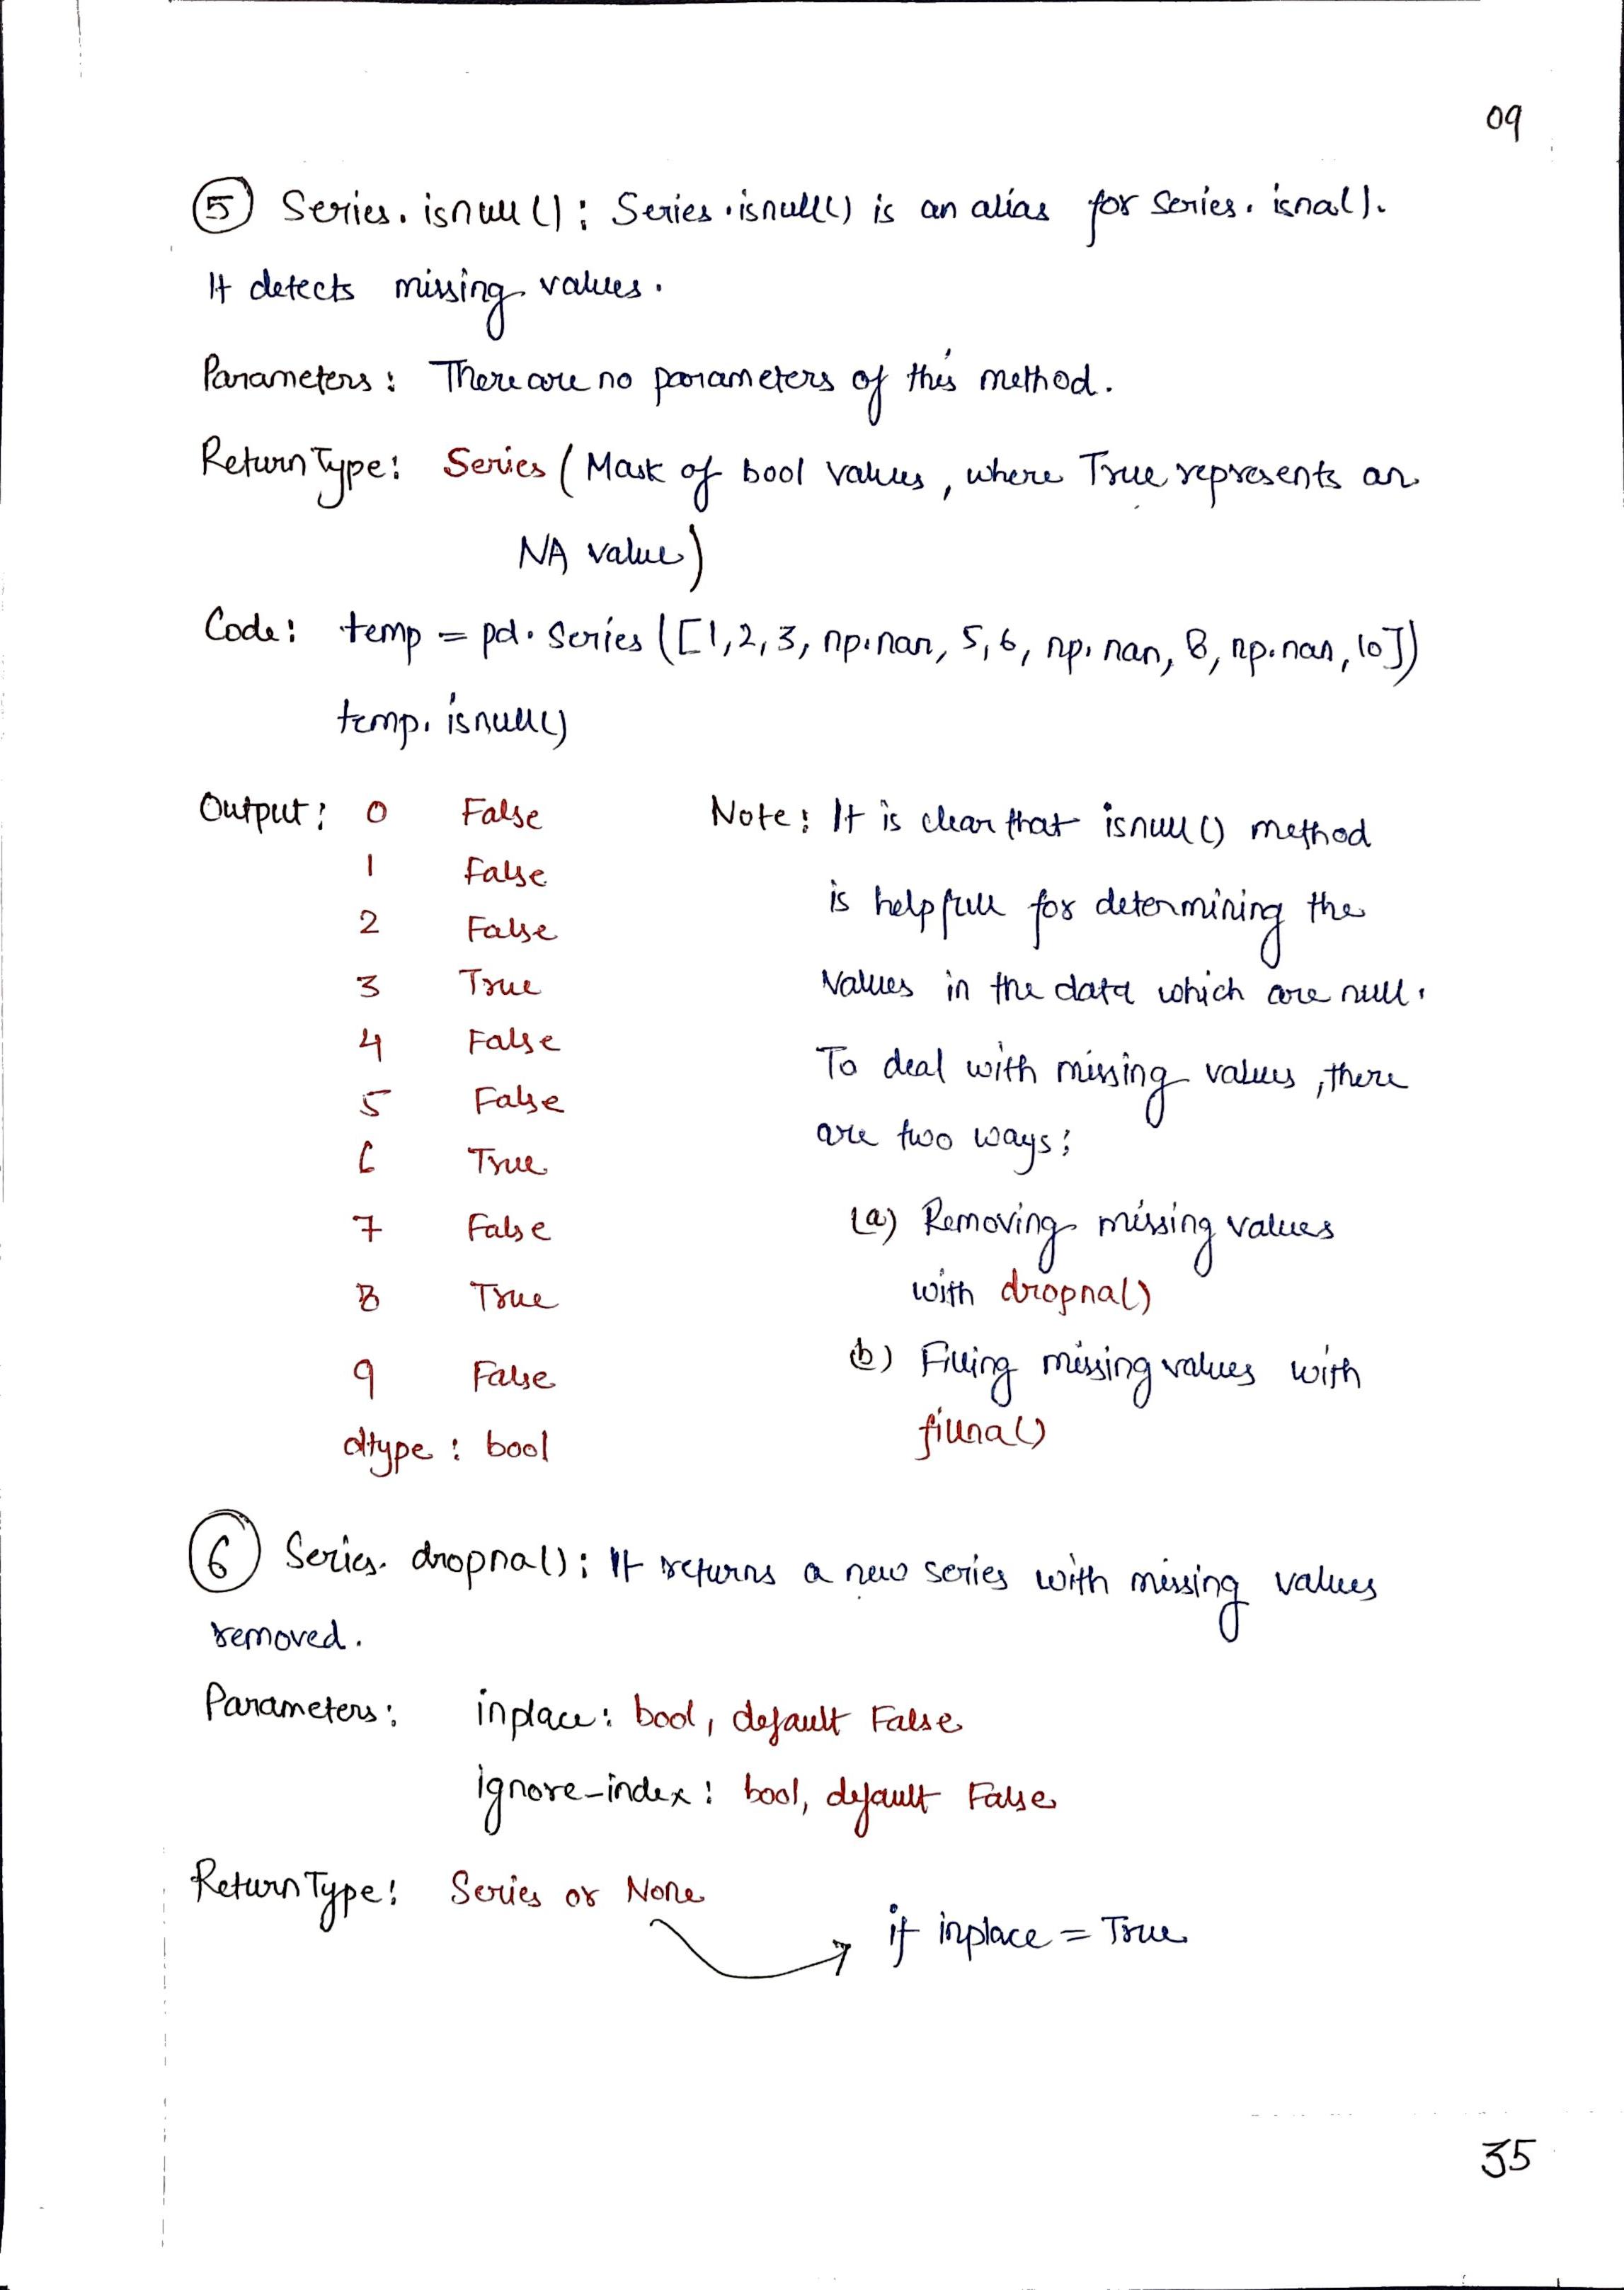 09
⑤ Series.isnull(): Series.isnull() is an alias for Series.isna().
It detects missing values.
Parameters: There are no parameters of this method.
Return Type: Series (Mask of bool values, where True represents an
NA value)
Code: temp = pd.Series([1,2,3, np.nan, 5,6, np.nan, 8, np.nan, 10])
temp.isnull()
Output: 0 False
1 False
2 False
3 True
4 False
5 False
6 True
7 False
8 True
9 False
dtype: bool
Note: It is clear that isnull() method
is helpfull for determining the
values in the data which are null.
To deal with missing values, there
are two ways:
(a) Removing missing values
with dropna()
(b) Filling missing values with
fillna()
⑥ Series.dropna(): It returns a new series with missing values
removed.
Parameters: inplace: bool, default False
ignore_index: bool, default False
Return Type: Series or None
if inplace = True
35